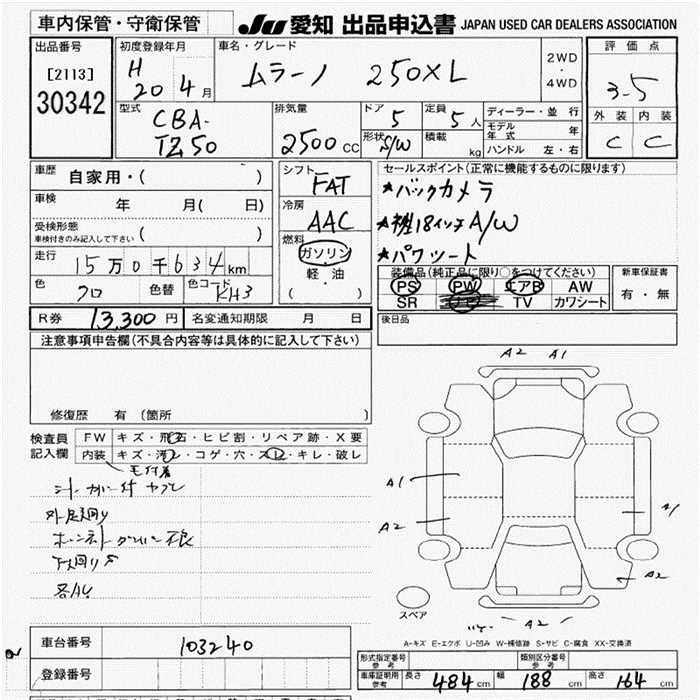 車内保管・守衛保管
JU 愛知 出品申込書 JAPAN USED CAR DEALERS ASSOCIATION
出品番号
[2113]
30342
初度登録年月
H 20 4月
車名・グレード
ムラーノ 250XL
2WD
・
4WD
評価点
3.5
外装 内装
C C
型式
CBA-
TZ50
排気量
2500 CC
ドア
5
定員
5人
形状
S/W
積載
kg
ディーラー・並行
モデル年式 年
ハンドル 左・右
車歴 自家用・( )
車検 年 月( 日)
受検形態
車検付きのみ記入して下さい ( )
走行 15万0千634km
色 クロ 色替 色コード KH3
シフト
FAT
冷房
AAC
燃料
ガソリン
・
軽・油
( )
セールスポイント(正常に機能するものに限ります)
★バックカメラ
★18インチA/W
★パワーシート
装備品(純正品に限り○をつけてください)
PS PW エアB AW
SR TV カワシート
新車保証書
有・無
R券 13,300円 名変通知期限 月 日
後日品
注意事項申告欄(不具合内容等は具体的に記入して下さい)
修復歴 有(箇所 )
検査員
記入欄
FW キズ・飛石・ヒビ割・リペア跡・X要
内装 キズ・汚レ・コゲ・穴・スレ・キレ・破レ
毛付着
外足廻り
下廻りサ
各AU
A2 A1
A1
A2
A1
A2
A2
スペア
A-キズ E-エクボ U-凹み W-補修跡 S-サビ C-腐食 XX-交換済
車台番号 103240
登録番号
形式指定番号
参考
類別区分番号
参考
車庫証明用
参考
長さ 484cm 幅 188cm 高さ 164cm